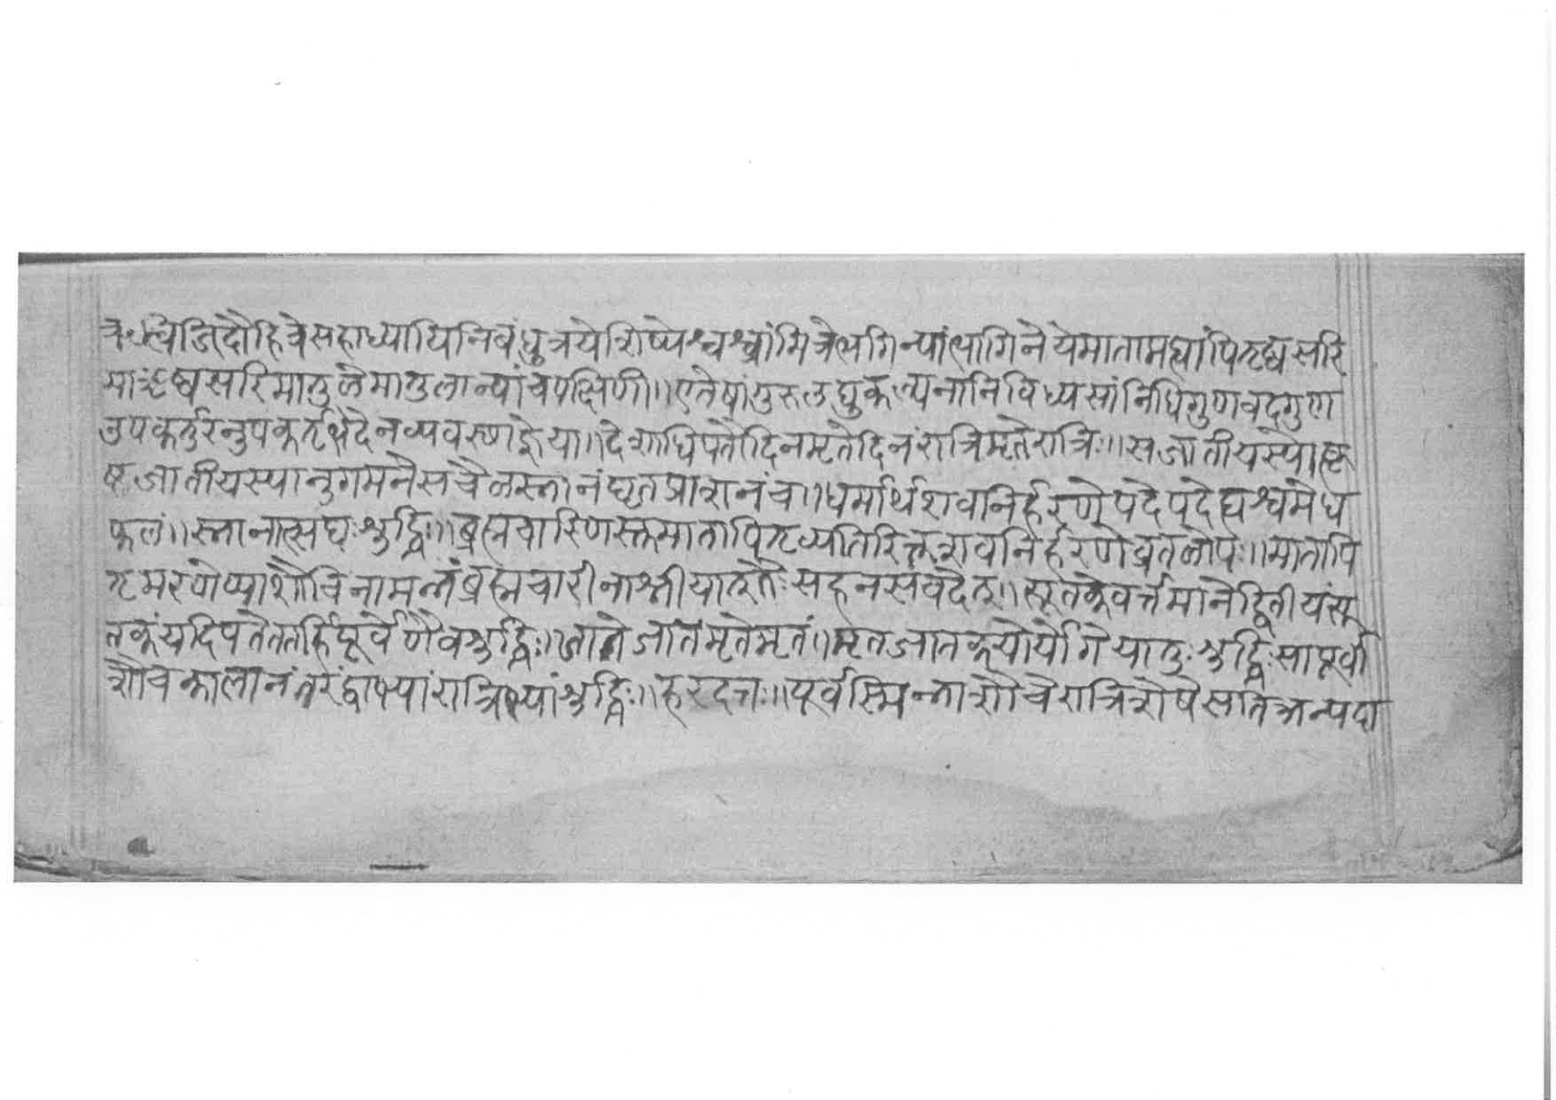 त्रऋत्विजिदौहित्रेसहाध्यायिनिबंधुत्रयेशिष्येश्वश्र्वांमित्रेभगिन्यांभागिनेयेमातामह्यांपितृष्वसरि
मातृष्वसरिमातुलेमातुलान्यांचपक्षिणी॥एतेषांगुरुलघुकल्पनानिविध्यसांनिधिगुणवद्गुण
उपकर्तुरनुपकर्तृभेदेनव्यवस्थाज्ञेया॥देशाधिपतौदिनमृतेदिनंरात्रिमृतेरात्रिः॥सजातीयस्यो
जातीयस्यानुगमनेसचैलस्नानंघृतप्राशनंच॥धर्मार्थशवनिर्हरणेपदेपदेह्यश्वमेध
फलं॥स्नानात्सद्यःशुद्धिः॥ब्रह्मचारिणस्तुमातापितृव्यतिरिक्तशवनिर्हरणेव्रतलोपः॥मातापि
तृमरणेप्याशौचिनामन्नंब्रह्मचारीनाश्नीयात्तैःसहनसंवदेत्॥सूतकेवर्त्तमानेद्वितीयंसू
तकंयदिपतेत्तर्हिपूर्वेणैवशुद्धिः॥जातेजातंमृतेमृतं॥मृतजातकयोर्योगेयातुःशुद्धिःसापूर्वा
शौचकालानंतरंद्वाभ्यांरात्रिभ्यांशुद्धिः॥हरदत्तः॥पूर्वस्मिन्नाशौचेरात्रिशेषेसतिअन्यदा